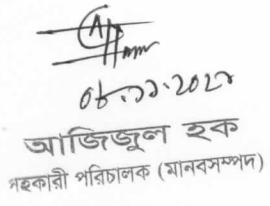 ০৮.১১.২০২৭
আজিজুল হক
সহকারী পরিচালক (মানবসম্পদ)